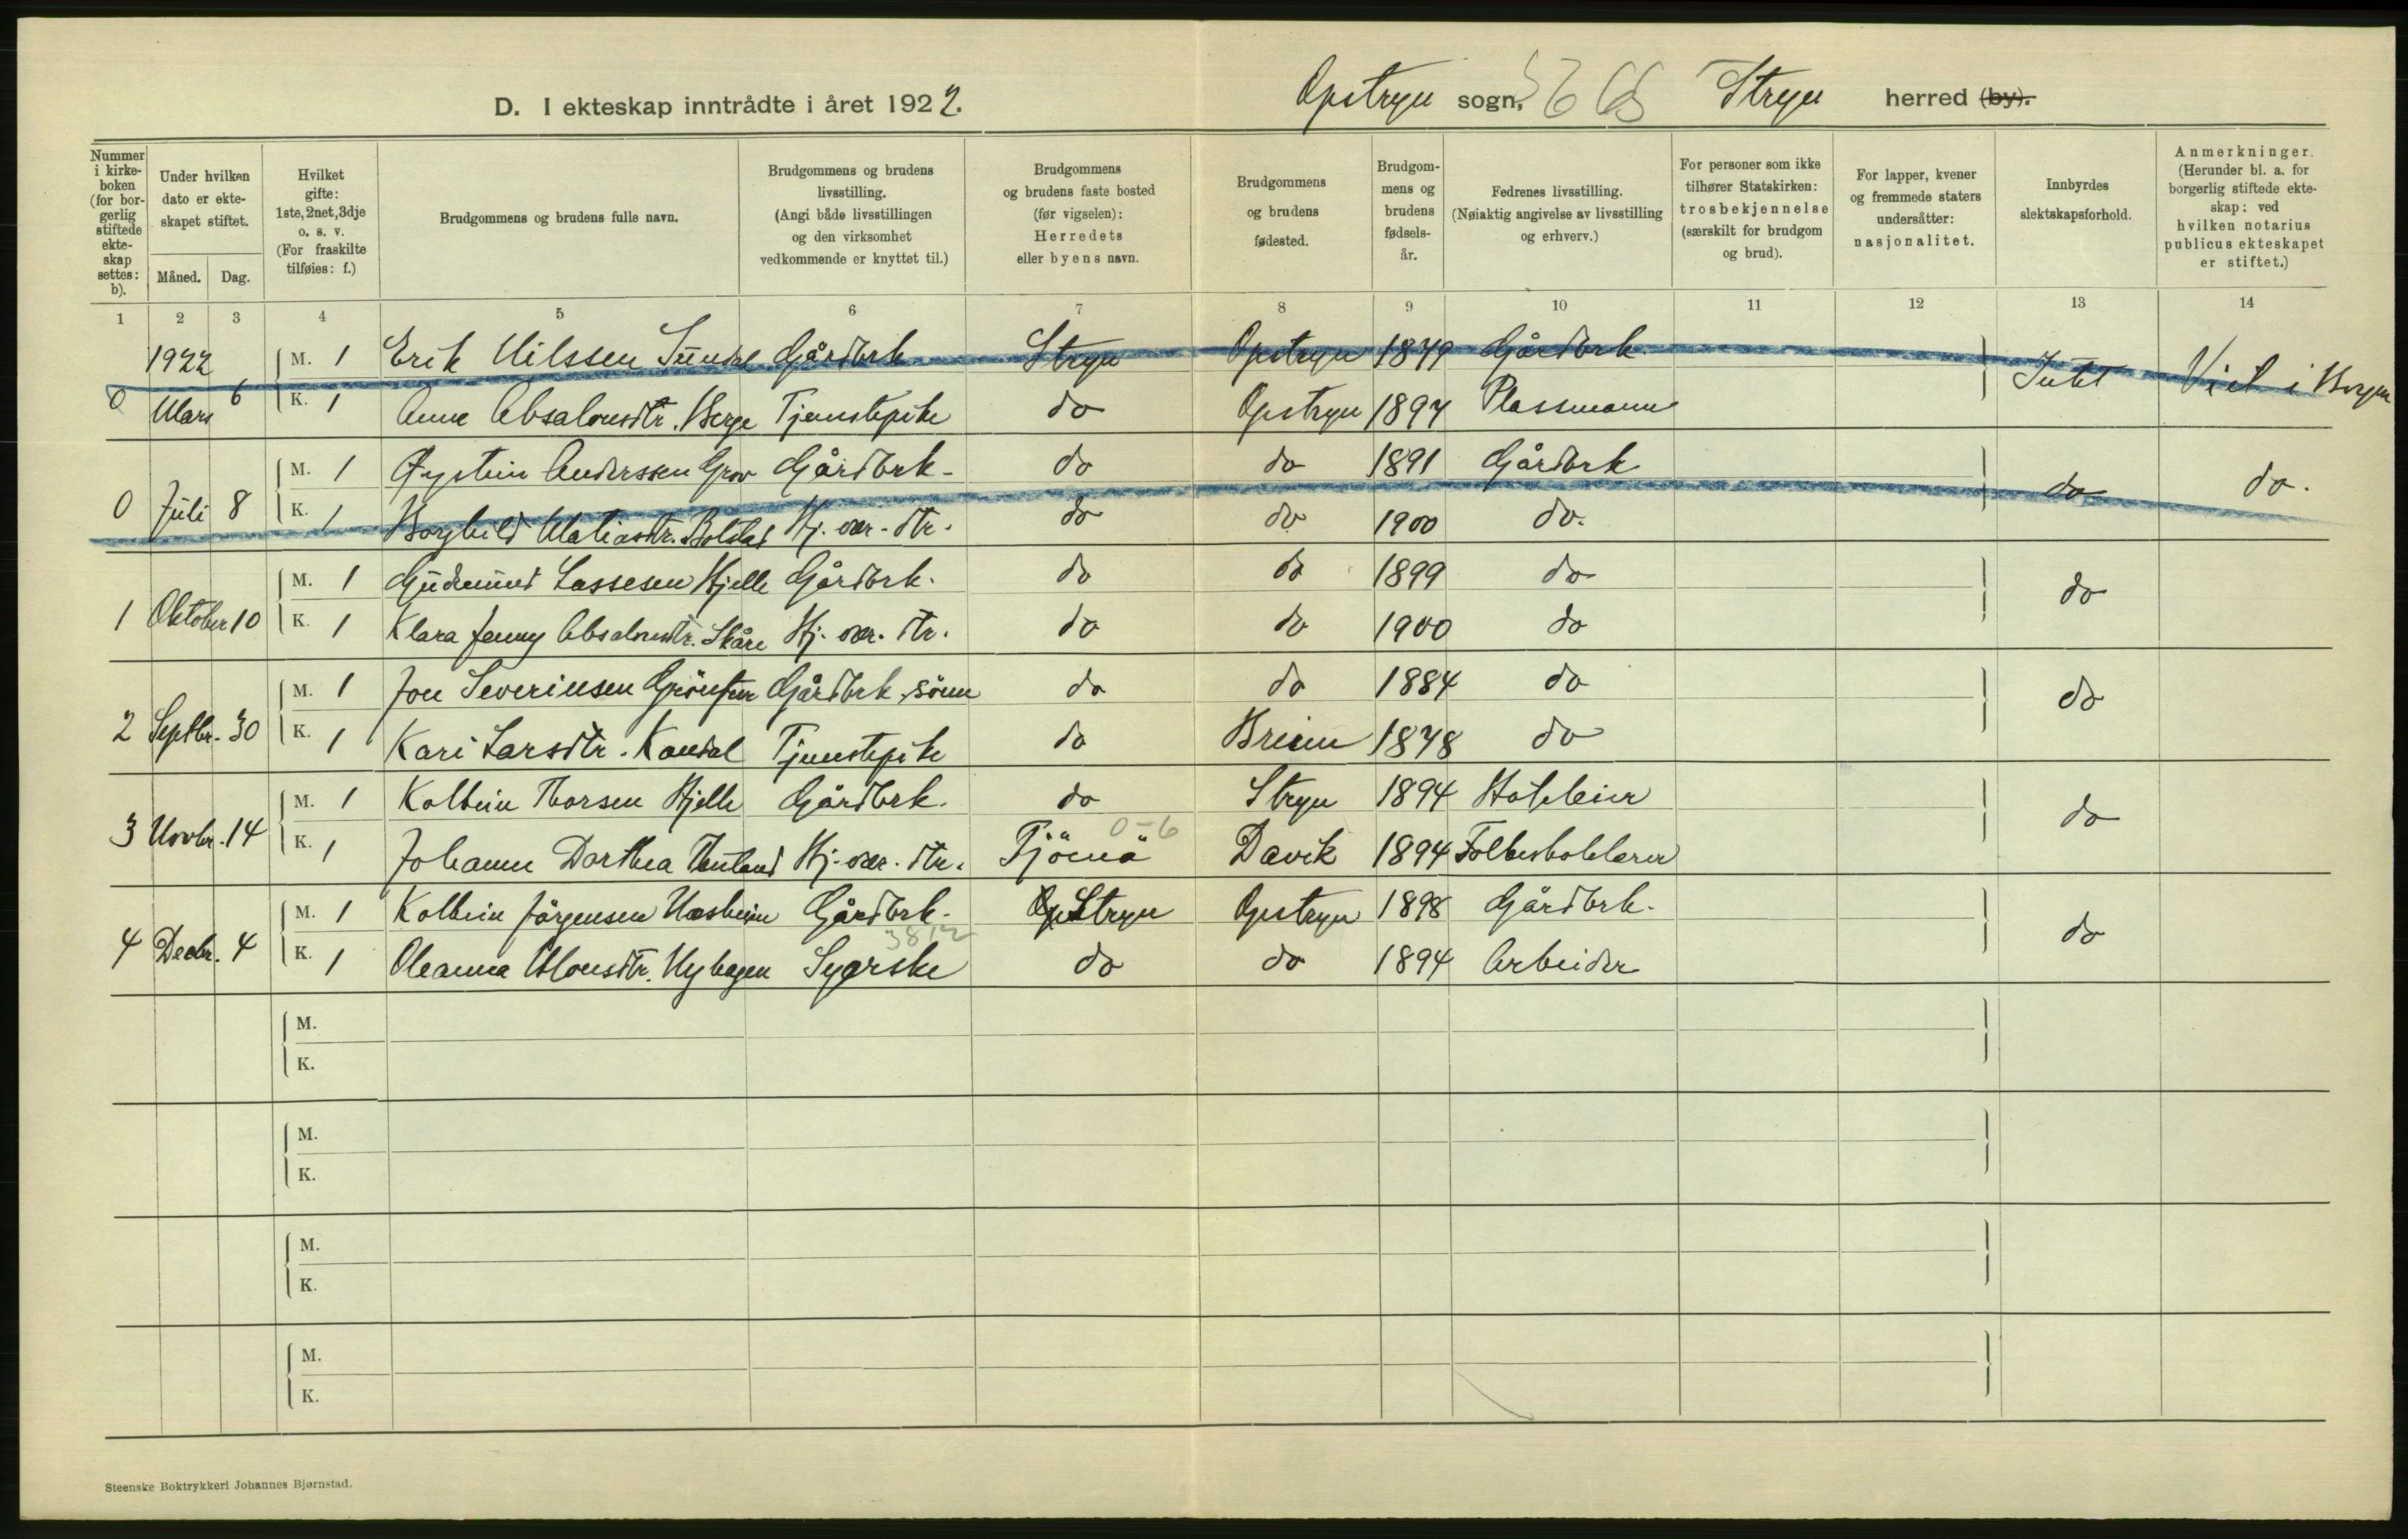 D. I ekteskap inntrådte i året 1922. Opstryn sogn, Stryn herred (by).
Nummer i kirkeboken (for borgerlig stiftede ekteskap settes: b).
Under hvilken dato er ekteskapet stiftet.
Måned. Dag.
Hvilket gifte: 1ste, 2net, 3dje o. s. v. (For fraskilte tilføies: f.)
Brudgommens og brudens fulle navn.
Brudgommens og brudens livsstilling. (Angi både livsstillingen og den virksomhet vedkommende er knyttet til.)
Brudgommens og brudens faste bosted (før vigselen): Herredets eller byens navn.
Brudgommens og brudens fødested.
Brudgommens og brudens fødselsår.
Fedrenes livsstilling. (Nøiaktig angivelse av livsstilling og erhverv.)
For personer som ikke tilhører Statskirken: trosbekjennelse (særskilt for brudgom og brud).
For lapper, kvener og fremmede staters undersåtter: nasjonalitet.
Innbyrdes slektskapsforhold.
Anmerkninger. (Herunder bl. a. for borgerlig stiftede ekteskap: ved hvilken notarius publicus ekteskapet er stiftet.)
1 2 3 4 5 6 7 8 9 10 11 12 13 14
1922 M. 1 Erik Nilssen Sundal Gårdbrk. Stryn Opstryn 1879 Gårdbrk.
0 Mars 6 K. 1 Anna Absalonsdtr. Berge Tjenstepike do Opstryn 1897 Plassmann Intet Viet i Bergen
M. 1 Øystein Anderssen Grov Gårdbrk. do do 1891 Gårdbrk.
0 Juli 8 K. 1 Borghild Matiasdtr. Bolstad Hj. vær. dtr. do do 1900 do. do do.
M. 1 Gudmund Lassesen Hjelle Gårdbrk. do do 1899 do
1 Oktober 10 K. 1 Klara Jenny Absalonsdtr. Skåre Hj. vær. dtr. do do 1900 do do
M. 1 Jon Severinsen Grönfur Gårdbrk. sönn do do 1884 do
2 Septbr. 30 K. 1 Kari Larsdtr. Kandal Tjenstepike do Breim 1878 do do
M. 1 Kolbein Thorsen Hjelle Gårdbrk. do Stryn 1894 Hoteleier
3 Novbr. 14 K. 1 Johanne Dorthea Hj. vær. dtr. Tjömö 0-6 Davik 1894 Folkeskolelærer do
M. 1 Kolbein Jörgensen Næsheim Gårdbrk. Stryn Opstryn 1898 Gårdbrk.
4 Decbr. 4 K. 1 Oleanna Monsdtr. Nyhagen Syerske do do 1894 Arbeider do
M.
K.
M.
K.
M.
K.
M.
K.
Steenske Boktrykkeri Johannes Bjørnstad.